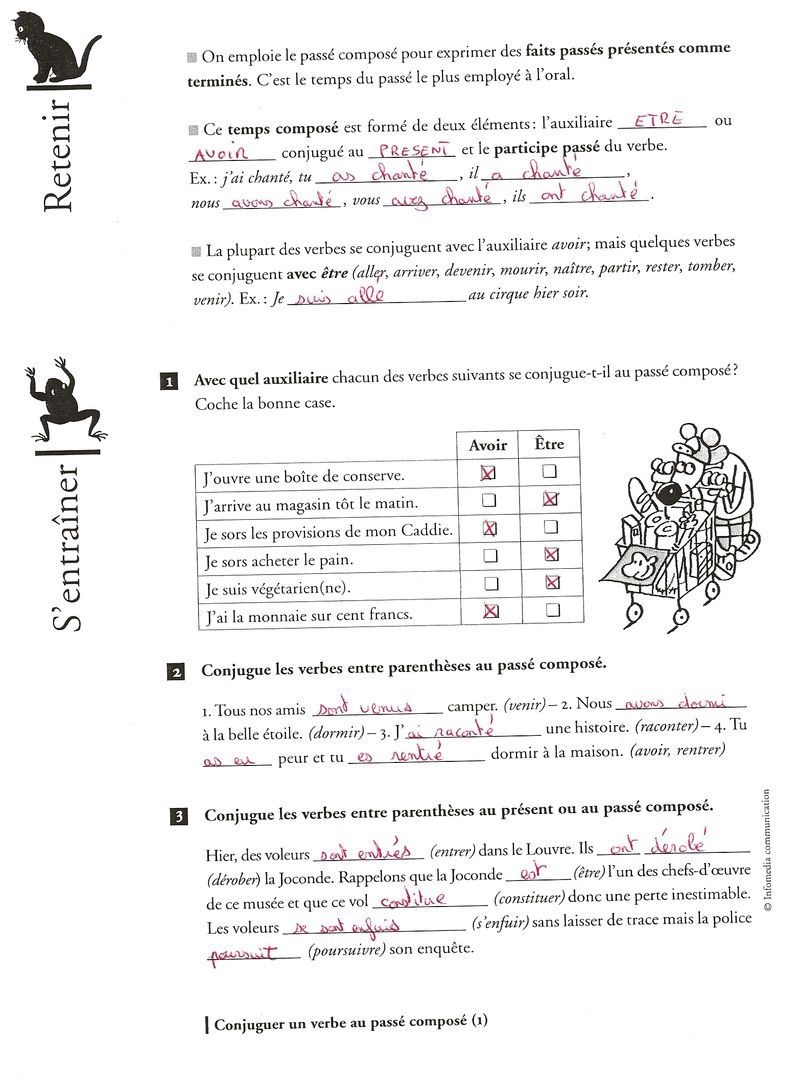 Retenir
On emploie le passé composé pour exprimer des faits passés présentés comme
terminés. C'est le temps du passé le plus employé à l'oral.
Ce temps composé est formé de deux éléments : l'auxiliaire ETRE ou
AVOIR conjugué au PRESENT et le participe passé du verbe.
Ex. : j'ai chanté, tu as chanté, il a chanté,
nous avons chanté, vous avez chanté, ils ont chanté.
La plupart des verbes se conjuguent avec l'auxiliaire avoir ; mais quelques verbes
se conjuguent avec être (aller, arriver, devenir, mourir, naître, partir, rester, tomber,
venir). Ex. : Je suis allé au cirque hier soir.
S'entraîner
1 Avec quel auxiliaire chacun des verbes suivants se conjugue-t-il au passé composé ?
Coche la bonne case.
Avoir Être
J'ouvre une boîte de conserve. ☒ ☐
J'arrive au magasin tôt le matin. ☐ ☒
Je sors les provisions de mon Caddie. ☒ ☐
Je sors acheter le pain. ☐ ☒
Je suis végétarien(ne). ☐ ☒
J'ai la monnaie sur cent francs. ☒ ☐
2 Conjugue les verbes entre parenthèses au passé composé.
1. Tous nos amis sont venus camper. (venir) – 2. Nous avons dormi
à la belle étoile. (dormir) – 3. J'ai raconté une histoire. (raconter) – 4. Tu
as eu peur et tu es rentré dormir à la maison. (avoir, rentrer)
3 Conjugue les verbes entre parenthèses au présent ou au passé composé.
Hier, des voleurs sont entrés (entrer) dans le Louvre. Ils ont dérobé
(dérober) la Joconde. Rappelons que la Joconde est (être) l'un des chefs-d'œuvre
de ce musée et que ce vol constitue (constituer) donc une perte inestimable.
Les voleurs se sont enfuis (s'enfuir) sans laisser de trace mais la police
poursuit (poursuivre) son enquête.
© Infomedia communication
Conjuguer un verbe au passé composé (1)